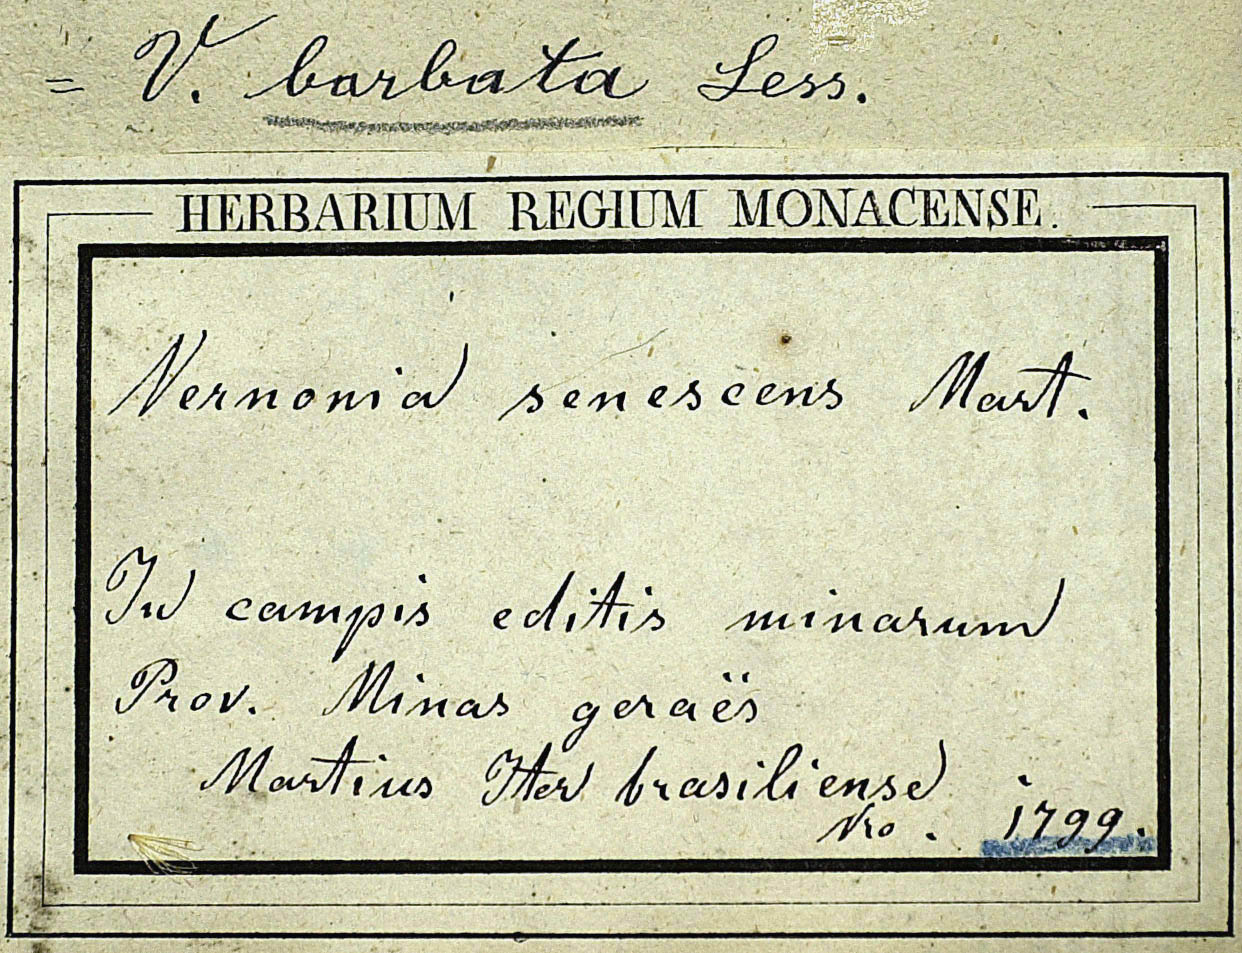 = V. barbata Less.
HERBARIUM REGIUM MONACENSE.
Vernonia senescens Mart.
In campis editis minarum
Prov. Minas geraës
Martius Iter brasiliense
Nro. 1799.